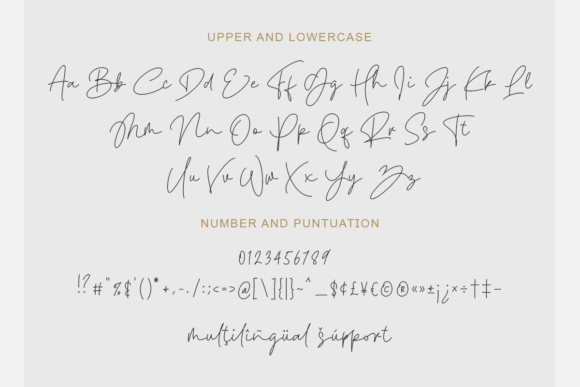 UPPER AND LOWERCASE
Aa Bb Cc Dd Ee Ff Gg Hh Ii Jj Kk Ll
Mm Nn Oo Pp Qq Rr Ss Tt
Uu Vv Ww Xx Yy Zz
NUMBER AND PUNTUATION
0123456789
!?#"%$'()*+,-./:;<=>@[\]{|}~^_$¢£¥€©®«»±¡¿×÷†‡–
mulţilîñgüal šúpport